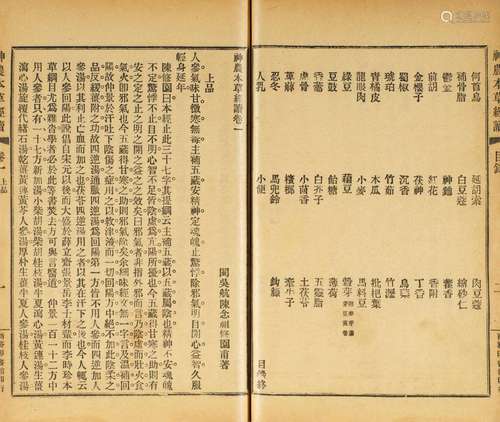 神農本草經讀
目錄
何首烏 延胡索 肉豆蔻
補骨脂 白豆蔻 縮砂仁
鬱金 神麯 藿香
前胡 紅花 香附
金櫻子 茯神 丁香
蜀椒 沉香 烏藥
琥珀 竹茹 竹瀝
青橘皮 木瓜 枇杷葉
小麥 馬料豆
綠豆
豆鼓 飴糖 薄荷
香薷 白芥子 五靈脂
虎骨 小茴香 土茯苓
萆薢 檳榔 牽牛子
忍冬 馬兜鈴 鉤藤
人乳 小便
目錄終
神農本草經讀卷一
閩吳航陳念祖修園甫著
上品
人參氣味甘微寒無毒主補五臟安精神定魂魄止驚悸除邪氣明目開心益智久服
輕身延年
陳修園曰本經止此三十七字其提綱云主補五臟以五臟屬陰也精神不安魂魄
不定驚悸不止目不明心智不足皆陰虛為亢陽所擾也今五臟得甘寒之助則有
安之定之止之明之開之益之之效矣曰邪氣者非指外邪而言乃陰虛而壯火食
氣火即邪氣也今五臟得甘寒之助則邪氣除矣余細味經文無一字言及溫補回
陽故仲景於汗吐下陰傷之症用之以救津液而一切回陽方中絕不加此陰柔之
品反緩薑附之功故四逆湯通脈四逆湯為回陽第一方皆不用人參而四逆加人
參湯以其利止亡血而加之也茯苓四逆湯用之者以其在汗下之後也今人輒云
以人參回陽此說倡自宋元以後而大盛於薛立齋張景岳李士材輩而李時珍本
草綱目尤為雜沓學者必於此等書焚去方可與言醫道 仲景一百一十三方中
用人參者只有一十七方新加湯小柴胡湯柴胡桂枝湯半夏瀉心湯黃連湯生薑
瀉心湯旋覆代赭石湯乾薑黃芩黃連人參湯厚朴生薑半夏人參湯桂枝人參湯
神農本草經讀
卷一
上品
一